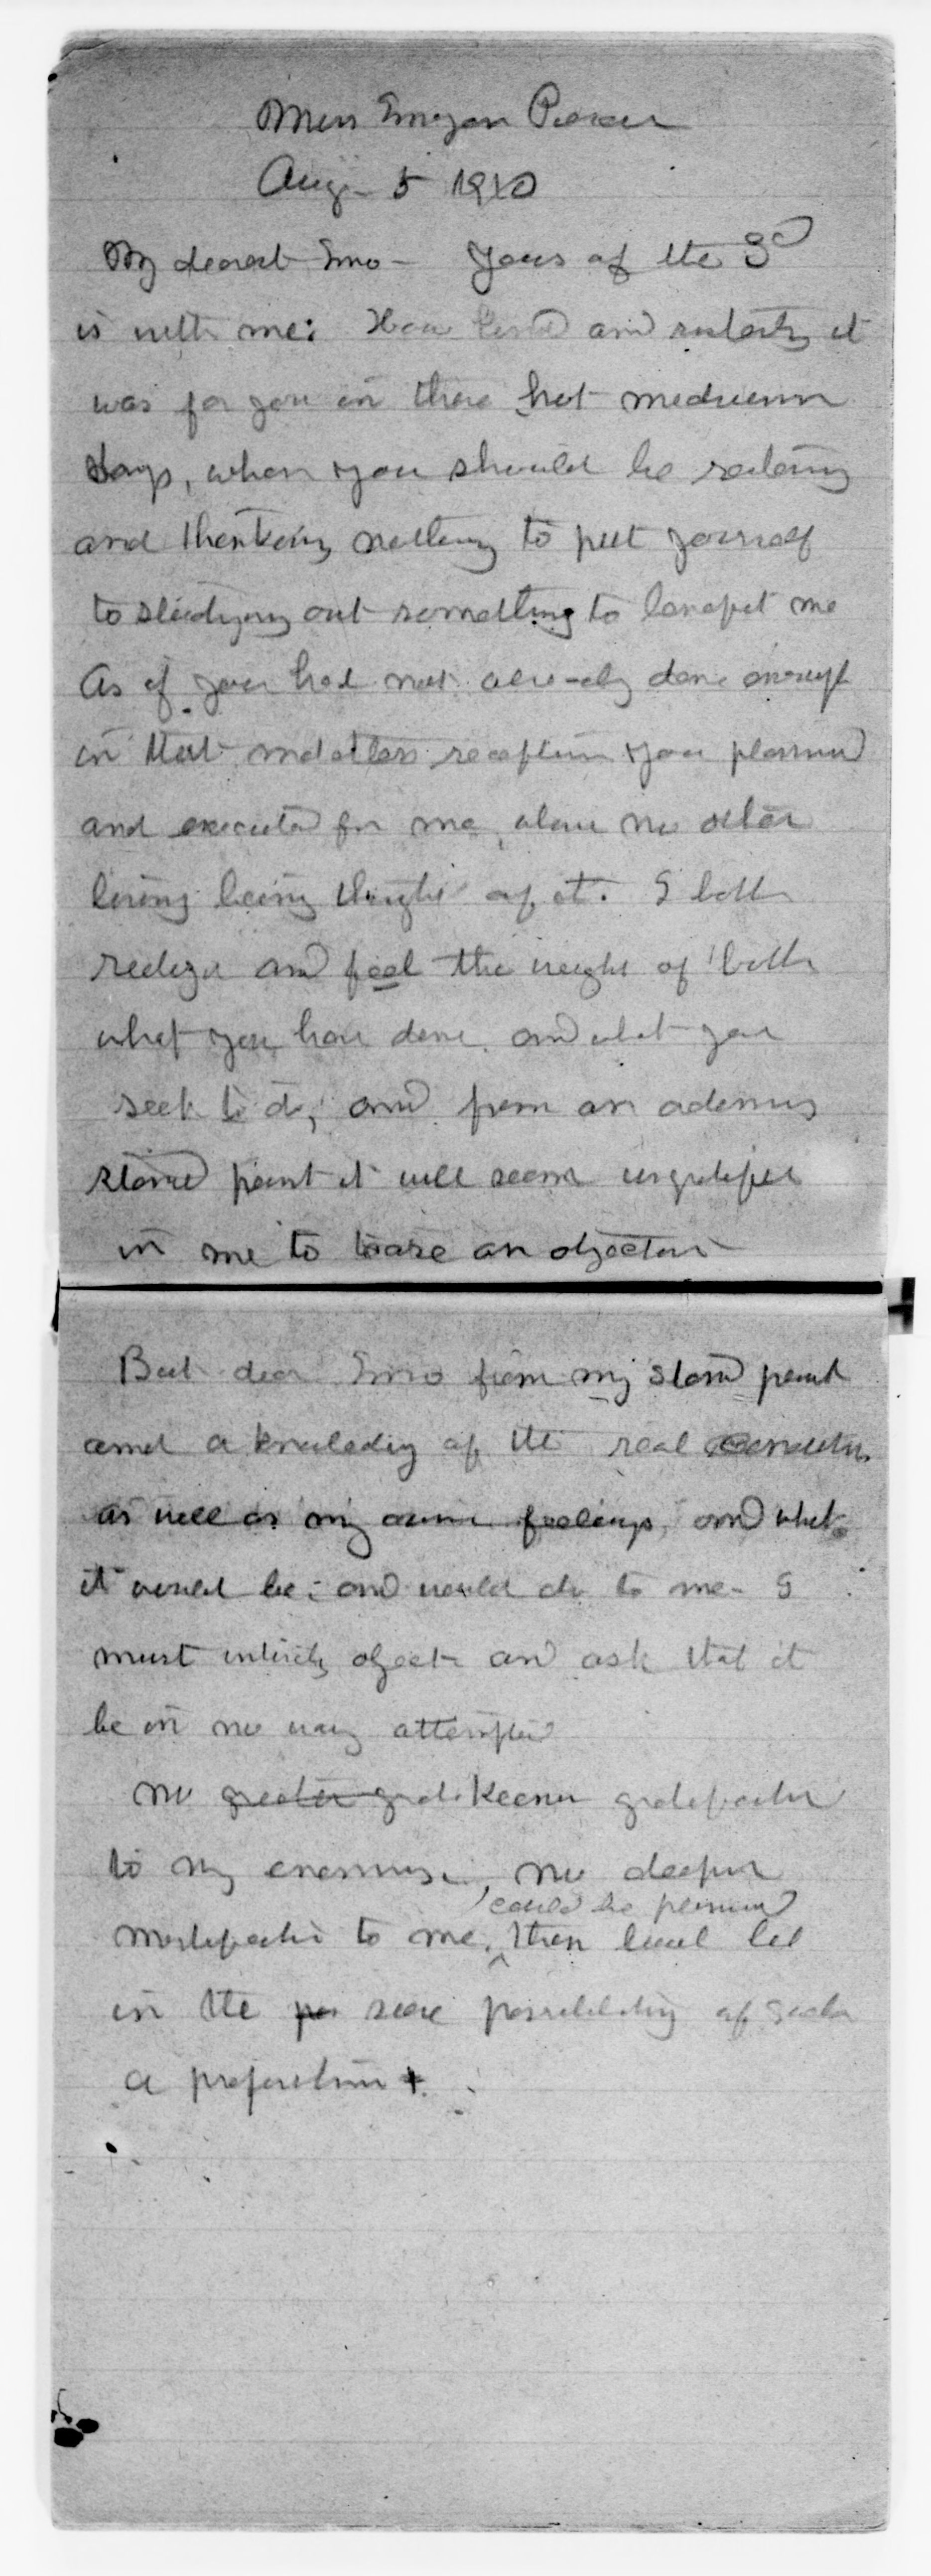 Miss
Aug 5 1910
My dearest Imo - Yours of the 3d
is with me: How kind and sisterly it
was for you in these hot
days, when you should be
and thinking nothing to put yourself
to studying out something to benefit me
As if you had not already done enough
in that matchless reception you planned
and executed for me, when no other
living being thought of it. I both
realize and feel the weight of both
what you have done, and what you
seek to do, and from an
stand point it will seem ungrateful
in me to raise an objection
But dear Imo from my stand point
and a knowledg of the real
as well as my own feelings, and what
it would be, and would do to me - I
must entirely object and ask that it
be in no way attempted
no greater keener gratification
to my enemies, no deeper
could be planned
mortification to me, then
in the possibility of such
a proposition